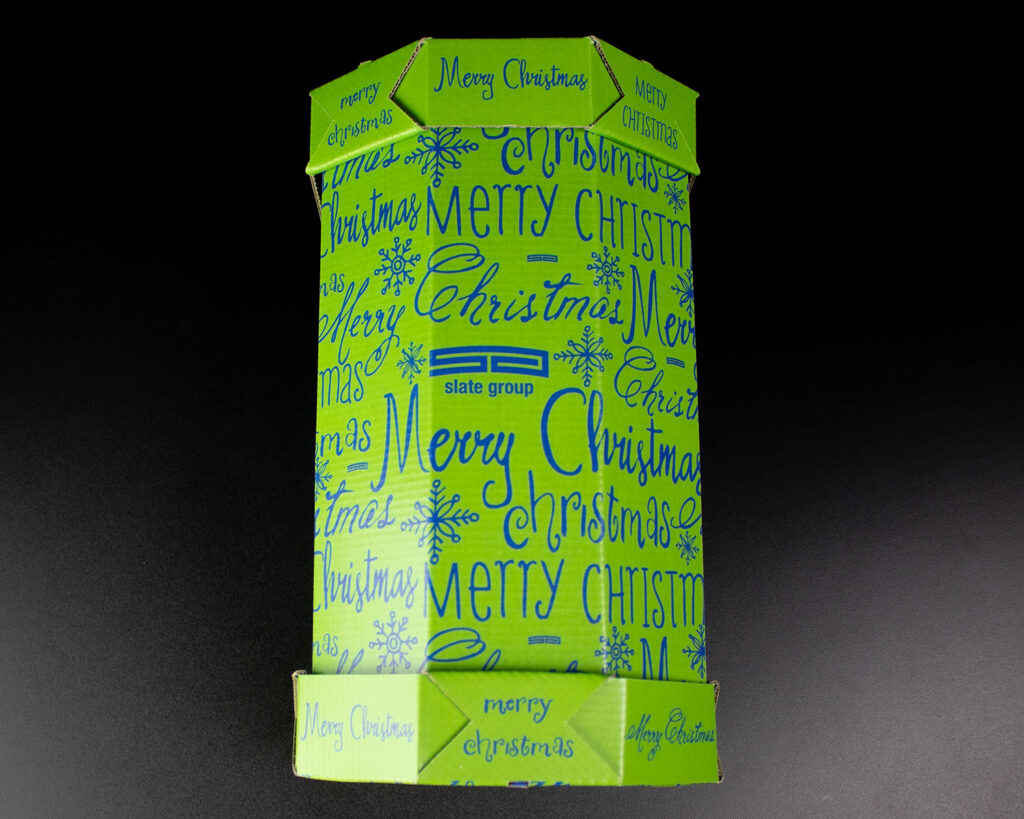 Merry Christmas
merry
christmas
MERRY
CHRISTMAS
christmas
Christmas
MERRY CHRISTM
mas
Christmas
Merry
Merry
mas
slate group
Christ
mas
Merry Christmas
christmas
tmas
Christmas
MERRY CHRISTM
mas
M
Merry Christmas
merry
christmas
Merry Christmas